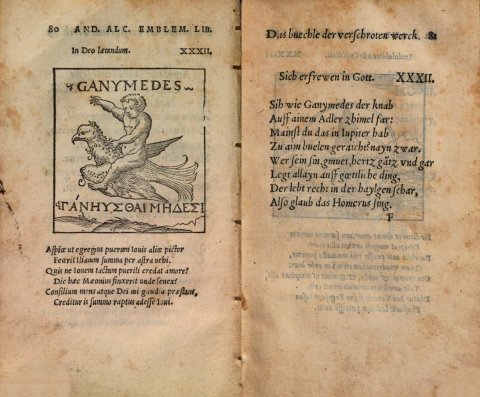 80 AND. ALC. EMBLEM. LIB.
In Deo lætandum. XXXII.
GANYMEDES
ΓΑΝΗΥΣΘΑΙ ΜΗΔΕΣΙ
Aspice ut egregius puerum Iouis alite pictor
Fecerit Iliacum summa per astra uehi.
Quis ne Iouem tactum puerili credat amore?
Dic hæc Mæonius finxerit unde senex?
Consilium mens atque Dei cui gaudia præstant,
Creditur is summo raptus adesse Ioui.
Das buechle der verschroten werck. 81
Sich erfrewen in Gott. XXXII.
Sih wie Ganymedes der knab
Auff ainem Adler zhimel far:
Mainst du das in Iupiter hab
Zu aim buelen geraicht? nayn zwar.
Wer sein sin, gmuet, hertz gãtz vnd gar
Legt allayn auff gœttliche ding,
Der lebt recht in der haylgen schar,
Also glaub das Homerus sing.
F